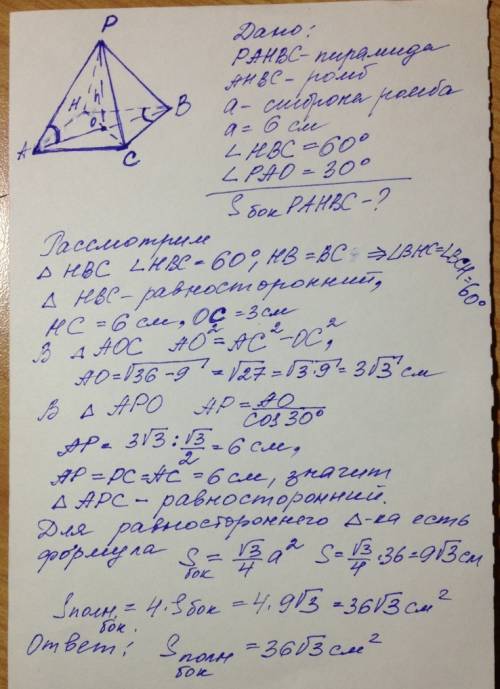 P
H
h
B
O
A
C
Дано:
PAHBC - пирамида
AHBC - ромб
a - сторона ромба
a = 6 см
∠HBC = 60°
∠PAO = 30°
Sбок PAHBC - ?
Рассмотрим
△ HBC ∠HBC = 60°, HB = BC ⇒ ∠BHC = ∠BCH = 60°
△ HBC - равносторонний,
HC = 6 см, OC = 3 см
В △ AOC AO² = AC² - OC²,
AO = √36 - 9 = √27 = √3·9 = 3√3 см
В △ APO AP = AO/cos 30°
AP = 3√3 : √3/2 = 6 см,
AP = PC = AC = 6 см, значит
△ APC - равносторонний.
Для равностороннего △-ка есть
формула Sбок = √3/4 a² S = √3/4 · 36 = 9√3 см
Sполн. бок. = 4 · Sбок = 4 · 9√3 = 36√3 см²
Ответ: Sполн бок = 36√3 см²